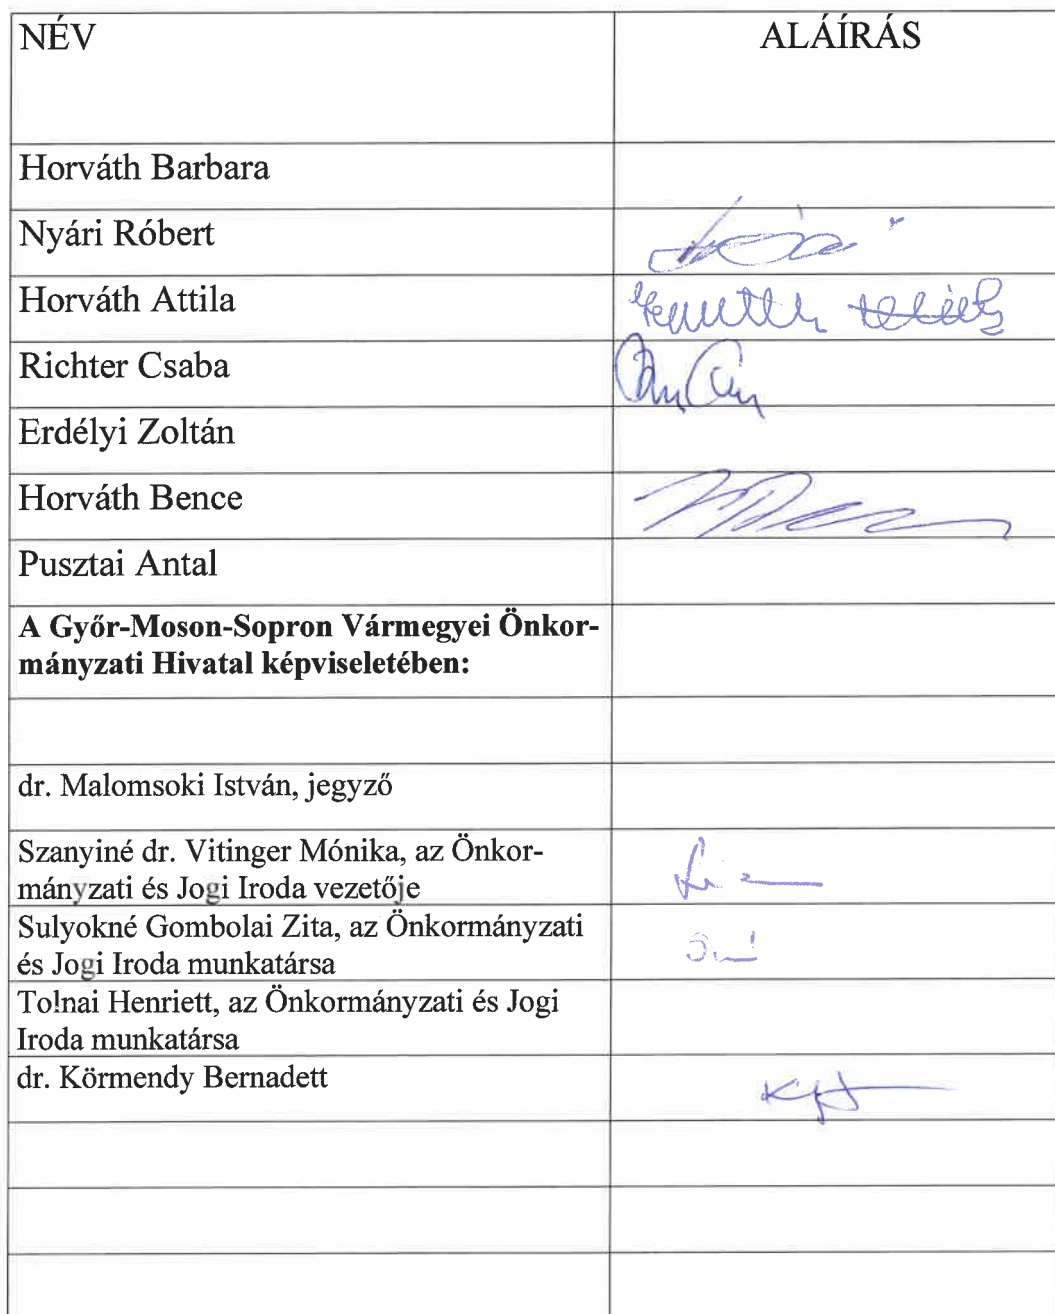 NÉV
ALÁÍRÁS
Horváth Barbara
Nyári Róbert
Horváth Attila
Richter Csaba
Erdélyi Zoltán
Horváth Bence
Pusztai Antal
A Győr-Moson-Sopron Vármegyei Önkor-
mányzati Hivatal képviseletében:
dr. Malomsoki István, jegyző
Szanyiné dr. Vitinger Mónika, az Önkor-
mányzati és Jogi Iroda vezetője
Sulyokné Gombolai Zita, az Önkormányzati
és Jogi Iroda munkatársa
Tolnai Henriett, az Önkormányzati és Jogi
Iroda munkatársa
dr. Körmendy Bernadett